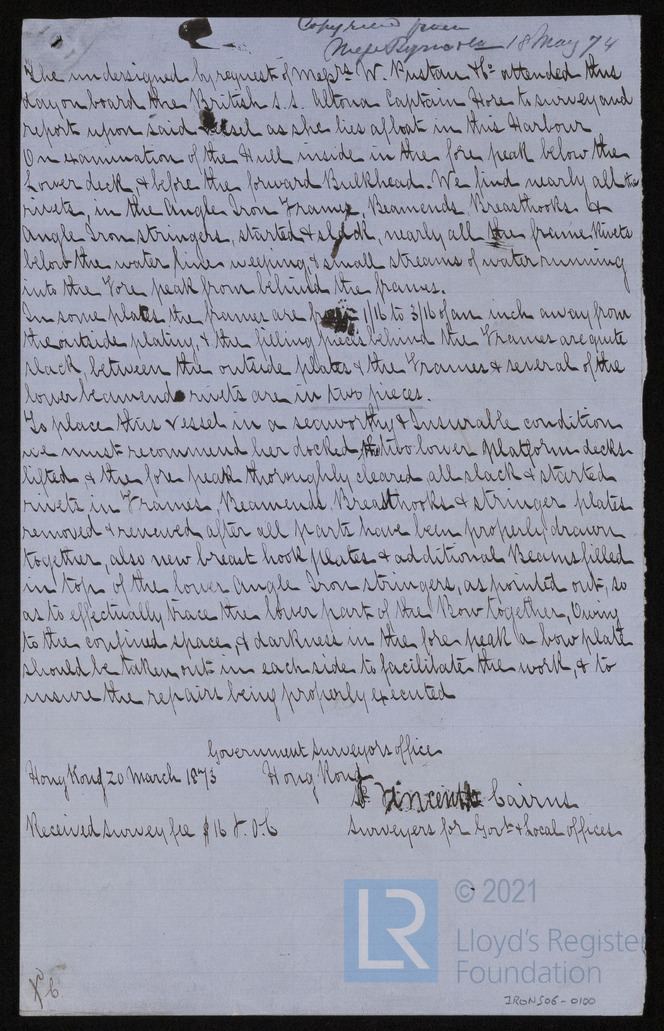 Copy received from
Messrs Reynolds 18 May 74
The undersigned by request of Messrs W. Pustau & Co attended this
day on board the British S.S. Altona Captain Hore to survey and
report upon said vessel as she lies afloat in this Harbour
On examination of the Hull inside in the fore peak below the
Lower deck, & before the forward Bulkhead. We find nearly all the
rivets, in the Angle Iron Frames, Beamends, Breasthooks &
Angle Iron stringers, started & slack, nearly all the frame rivets
below the water line weeping, & small streams of water running
into the Fore peak from behind the frames.
In some places the frames are from 1/16 to 3/16 of an inch away from
the outside plating, & the filling pieces behind the Frames are quite
slack, between the outside plates & the Frames & several of the
lower beamends rivets are in two pieces.
To place this vessel in a seaworthy & Insurable condition
we must recommend her docked the two lower platform decks
lifted & the fore peak thoroughly cleared all slack & started
rivets in Frames, Beamends, Breasthooks & stringer plates
removed & renewed after all parts have been properly drawn
together, also new breast hook plates & additional Beams filled
in top of the lower Angle Iron stringers, as pointed out, so
as to effectually brace the lower part of the Bow together, Owing
to the confined space, & darkness in the fore peak a bow plate
should be taken out in each side to facilitate the work, & to
insure the repairs being properly executed
Government Surveyors office
Hong Kong 20 March 1873 Hong Kong
Vincent Cairns
Received survey fee $16
Surveyors for Govt & Local offices
© 2021
LR
Lloyd's Register
Foundation
IRONS06-0100